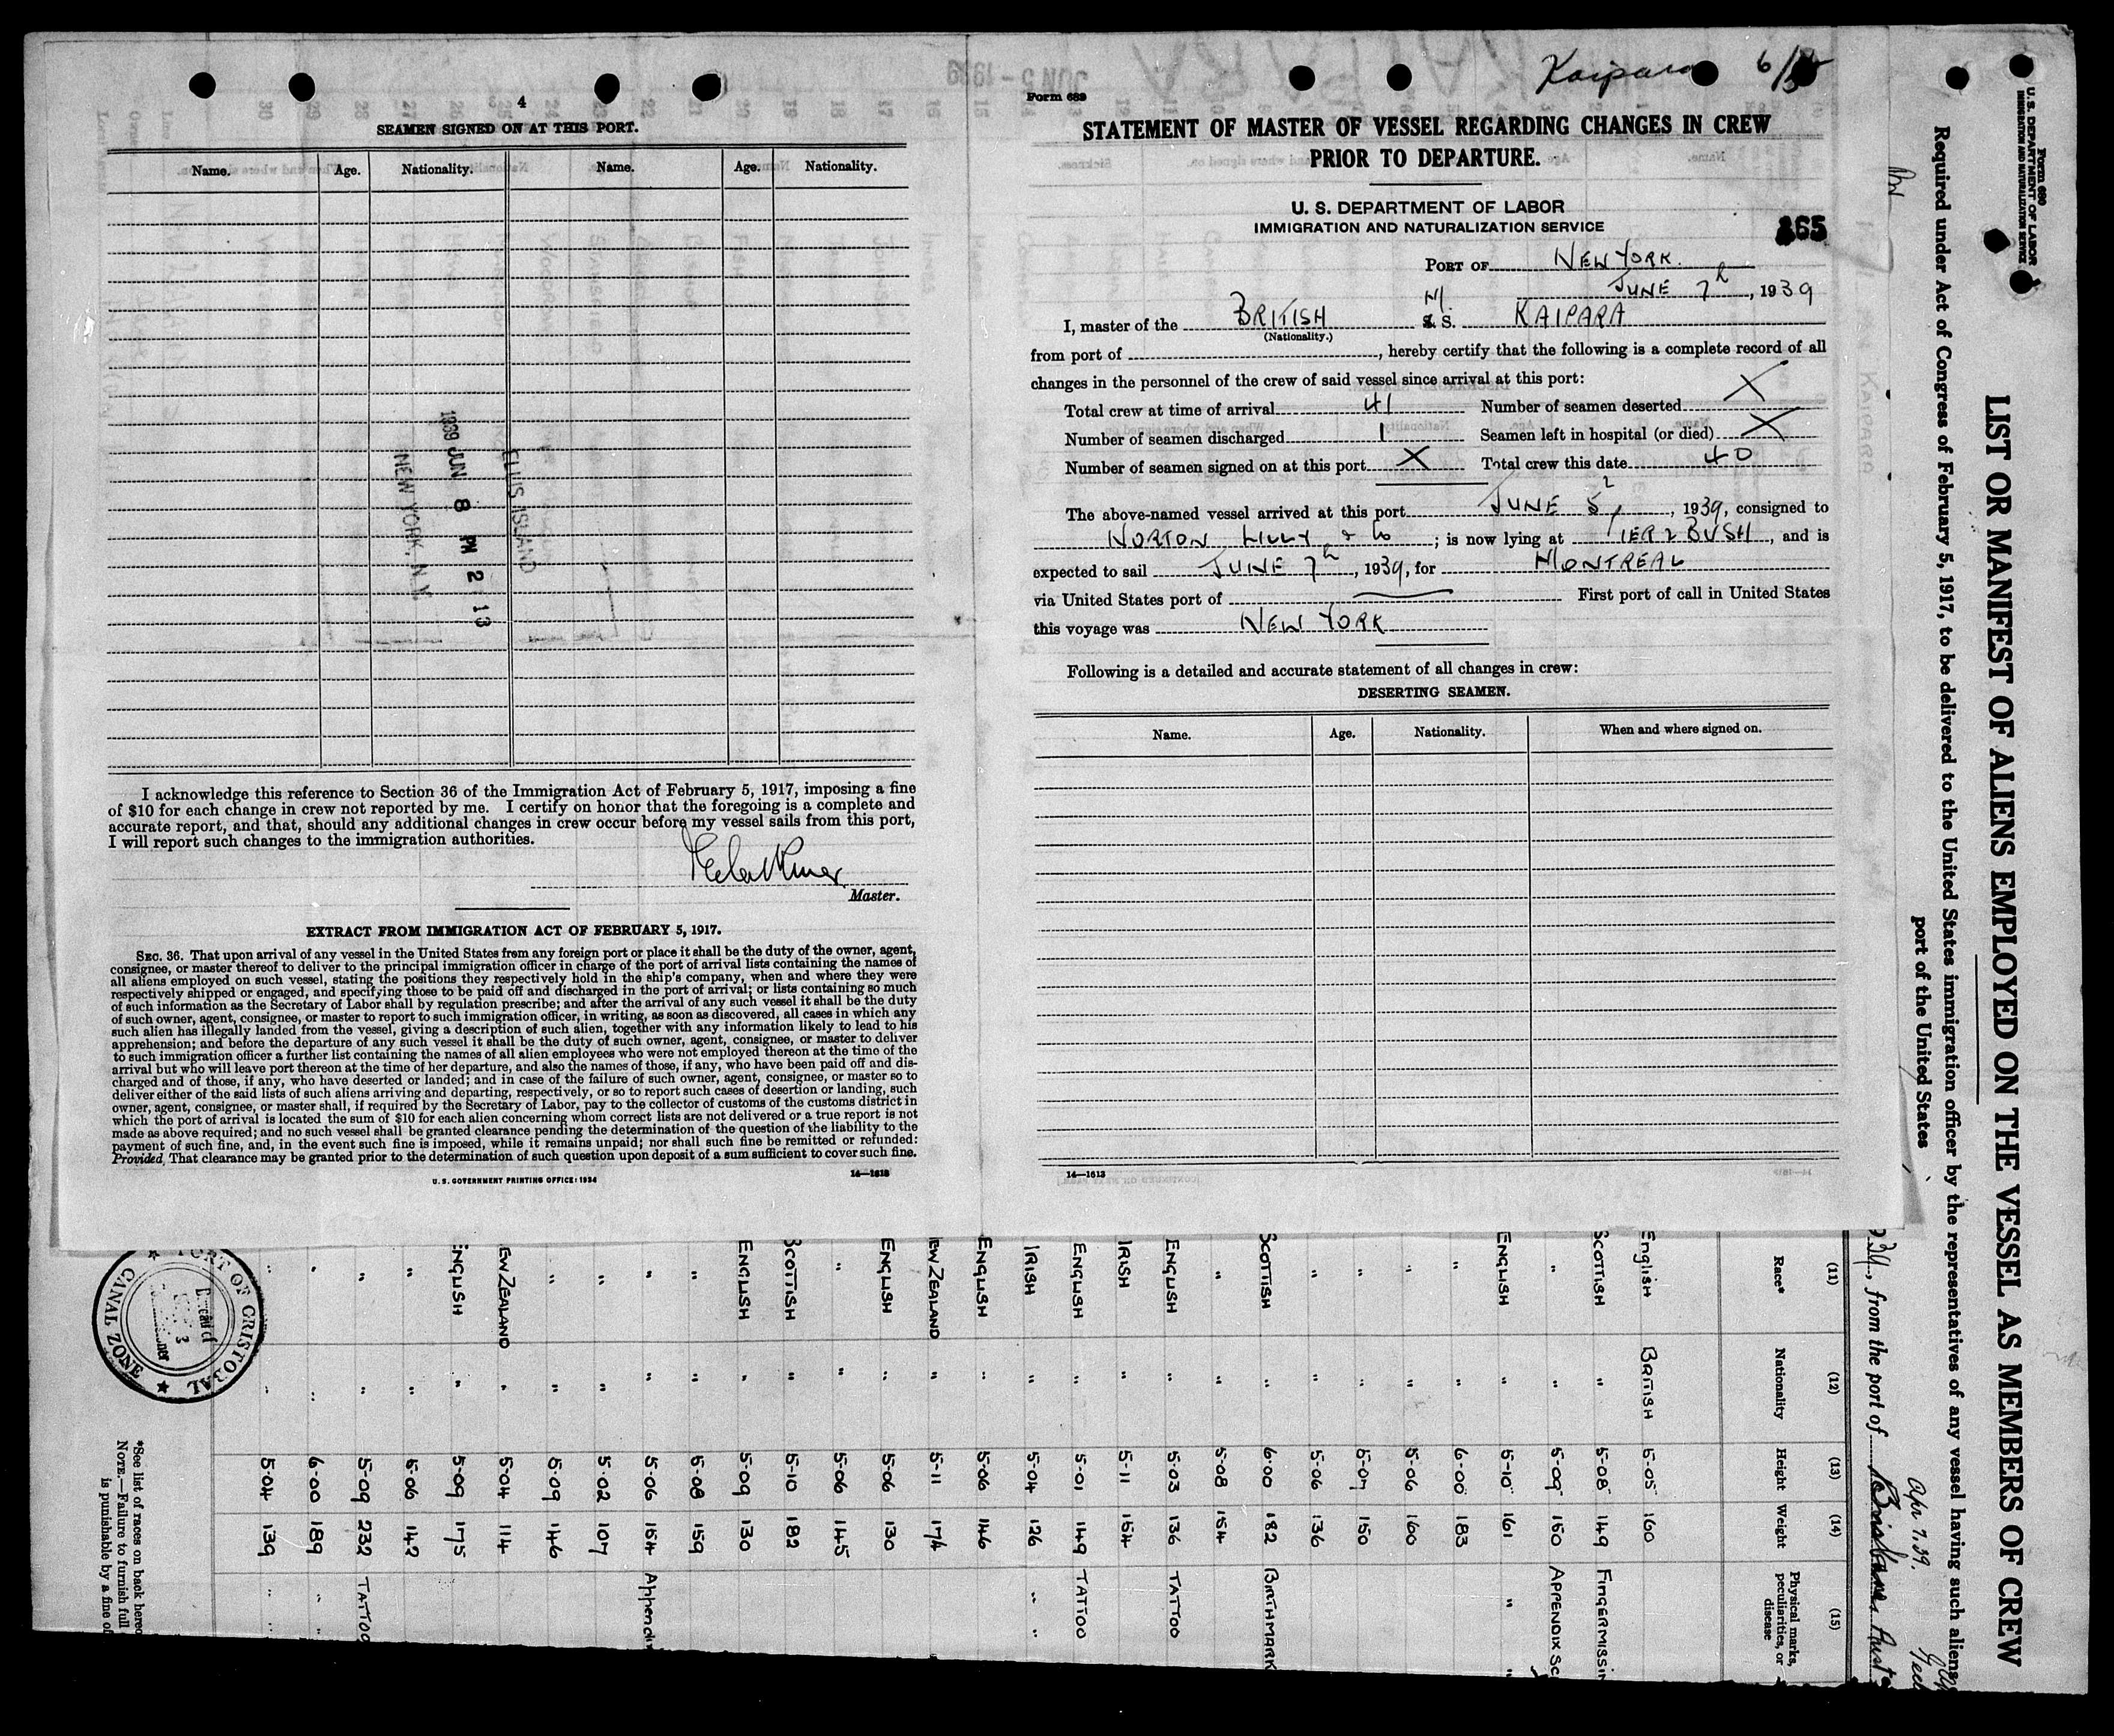 4
SEAMEN SIGNED ON AT THIS PORT.
Name. Age. Nationality. Name. Age. Nationality.
ELLIS ISLAND
1939 JUN 8 PM 2 13
NEW YORK, N.Y.
I acknowledge this reference to Section 36 of the Immigration Act of February 5, 1917, imposing a fine
of $10 for each change in crew not reported by me. I certify on honor that the foregoing is a complete and
accurate report, and that, should any additional changes in crew occur before my vessel sails from this port,
I will report such changes to the immigration authorities.
Master.
EXTRACT FROM IMMIGRATION ACT OF FEBRUARY 5, 1917.
SEC. 36. That upon arrival of any vessel in the United States from any foreign port or place it shall be the duty of the owner, agent,
consignee, or master thereof to deliver to the principal immigration officer in charge of the port of arrival lists containing the names of
all aliens employed on such vessel, stating the positions they respectively hold in the ship's company, when and where they were
respectively shipped or engaged, and specifying those to be paid off and discharged in the port of arrival; or lists containing so much
of such information as the Secretary of Labor shall by regulation prescribe; and after the arrival of any such vessel it shall be the duty
of such owner, agent, consignee, or master to report to such immigration officer, in writing, as soon as discovered, all cases in which any
such alien has illegally landed from the vessel, giving a description of such alien, together with any information likely to lead to his
apprehension; and before the departure of any such vessel it shall be the duty of such owner, agent, consignee, or master to deliver
to such immigration officer a further list containing the names of all alien employees who were not employed thereon at the time of the
arrival but who will leave port thereon at the time of her departure, and also the names of those, if any, who have been paid off and dis-
charged and of those, if any, who have deserted or landed; and in case of the failure of such owner, agent, consignee, or master so to
deliver either of the said lists of such aliens arriving and departing, respectively, or so to report such cases of desertion or landing, such
owner, agent, consignee, or master shall, if required by the Secretary of Labor, pay to the collector of customs of the customs district in
which the port of arrival is located the sum of $10 for each alien concerning whom correct lists are not delivered or a true report is not
made as above required; and no such vessel shall be granted clearance pending the determination of the question of the liability to the
payment of such fine, and, in the event such fine is imposed, while it remains unpaid; nor shall such fine be remitted or refunded:
Provided, That clearance may be granted prior to the determination of such question upon deposit of a sum sufficient to cover such fine.
U. S. GOVERNMENT PRINTING OFFICE: 1934 14—1613
Kaipara
Form 689
STATEMENT OF MASTER OF VESSEL REGARDING CHANGES IN CREW
PRIOR TO DEPARTURE.
U. S. DEPARTMENT OF LABOR
IMMIGRATION AND NATURALIZATION SERVICE
365
PORT OF NEW YORK.
JUNE 7th, 1939
I, master of the BRITISH M S. KAIPARA
(Nationality.)
from port of , hereby certify that the following is a complete record of all
changes in the personnel of the crew of said vessel since arrival at this port:
Total crew at time of arrival 41 Number of seamen deserted X
Number of seamen discharged 1 Seamen left in hospital (or died) X
Number of seamen signed on at this port X Total crew this date 40
The above-named vessel arrived at this port JUNE 5, 1939, consigned to
NORTON LILLY & Co ; is now lying at PIER 2 BUSH, and is
expected to sail JUNE 7th, 1939, for MONTREAL
via United States port of First port of call in United States
this voyage was NEW YORK
Following is a detailed and accurate statement of all changes in crew:
DESERTING SEAMEN.
Name. Age. Nationality. When and where signed on.
14—1613
Form 680
U. S. DEPARTMENT OF LABOR
IMMIGRATION AND NATURALIZATION SERVICE
LIST OR MANIFEST OF ALIENS EMPLOYED ON THE VESSEL AS MEMBERS OF CREW
Required under Act of Congress of February 5, 1917, to be delivered to the United States immigration officer by the representatives of any vessel having such aliens
port of the United States
Apr 7.39.
, from the port of Brisbane, Aust
(11) (12) (13) (14) (15)
Race* Nationality Height Weight Physical marks, peculiarities, or disease
English BRITISH 5-05 160
SCOTTISH " 5-08 149 FINGER MISSIN
" " 5-09 150 APPENDIX SC
ENGLISH " 5-10 161 " "
" " 6-00 183
" " 5-06 160
" " 5-07 150
" " 5-06 136
SCOTTISH " 6-00 182 BIRTHMARK
" " 5-08 154
ENGLISH " 5-03 136 TATTOO
IRISH " 5-11 154
ENGLISH " 5-01 149 TATTOO
IRISH " 5-04 126 " "
ENGLISH " 5-06 146
EW ZEALAND " 5-11 174
ENGLISH " 5-06 130
" " 5-06 145
SCOTTISH " 5-10 182
ENGLISH " 5-09 130
" " 5-08 159
" " 5-06 154 Appendix
" " 5-02 107
" " 5-09 146
EW ZEALAND " 5-04 114
ENGLISH " 5-09 175
" " 5-06 142
" " 5-09 232 TATTOO
" " 6-00 189 "
" " 5-04 139 "
*See list of races on back hereo
NOTE.—Failure to furnish full
is punishable by a fine of
PORT OF CRISTOBAL
CANAL ZONE